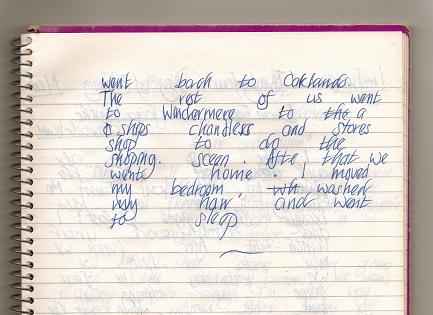 went back to Oaklands.
The rest of us went
to Windermere to the a
ships chandless and stores
shop to do the
shoping. sceen. Afte, that we
went home. I moved
my bedroom, wh washed
my hair, and went
to sleep